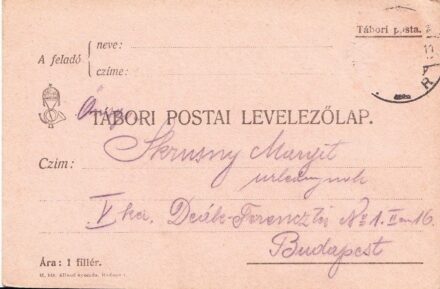 Tábori posta.
A feladó
neve:
czime:
TÁBORI POSTAI LEVELEZŐLAP.
Czim: Skrusny Margit
urleánynak
V ker. Deák-Ferencz tér No 1. II em 16.
Budapest
Ára: 1 fillér.
M. kir. állami nyomda. Budapest